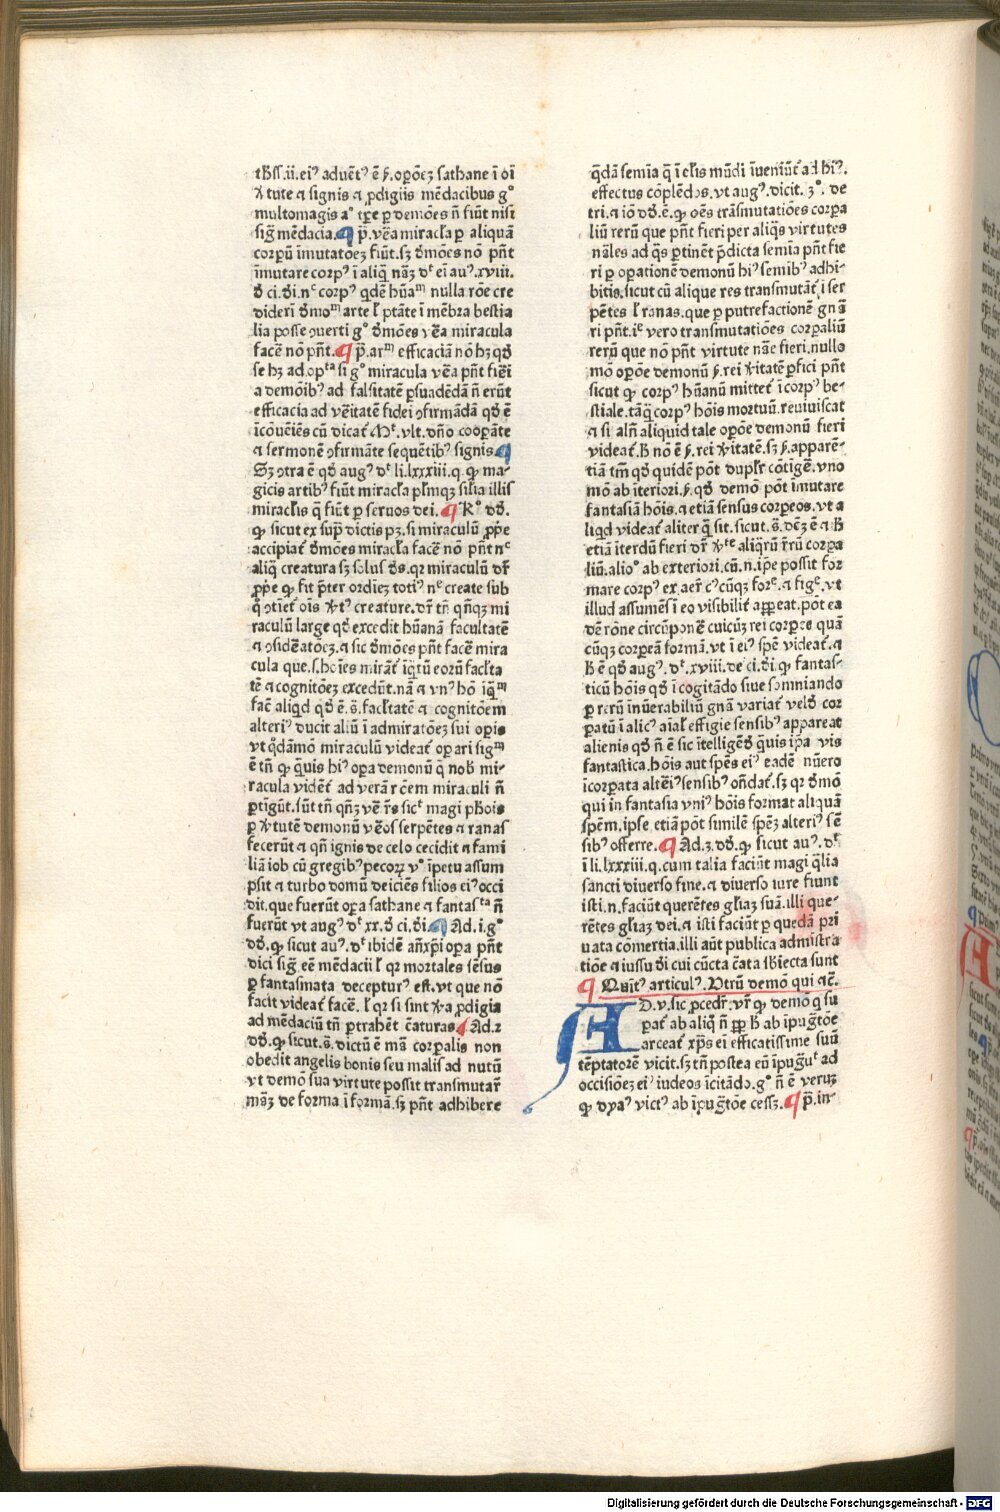 thess.ii.eiꝰ aduēt' ē ẜ. oꝑōeꝫ sathane ī oī
ꝟtute ⁊ signis ⁊ ꝓdigiis mēdacibus gͦ
multomagis aͦ tꝑe ꝑ demōes ñ fiūt nisi
sigᷓ mēdacia.¶ p̄. vēa miracła ꝑ aliquā
corpꝝ īmutatōeꝫ fiūt.sꝫ dēmōes nō pn̄t
īmutare corpꝰ ī aliq̄ nāꝫ dᵗ eī auꝰ.xviii.
đ ci.đi.nᶜ corpꝰ qdē hūaᵐ nulla rōe cre
dideri đmoᵐ arte ł ptāte ī mēbra bestia
lia posse ꝯuerti gͦ đmōes vēa miracula
facē nō pn̄t.¶ p̄.arᵐ efficaciā nō hꝫ qđ
se hꝫ ad.opᵗᵃ si gͦ miracula vēa pn̄t fiēi
a demōibꝰ ad falsitatē ꝑsuadēdā ñ erūt
efficacia ad vēitatē fidei ꝯfirmādā qđ ē
īcōuēiēs cū dicat' Mʳ.vlt.dño cooꝑāte
⁊ sermonē ꝯfirmāte sequētibꝰ signis.¶
Sꝫ ꝯtra ē qđ augꝰ dᵗ li.lxxxiii.q.ꝙ ma-
gicis artibꝰ fiūt miracła płmqꝫ silia illis
miracłis q̄ fiūt ꝑ seruos dei.¶ Rͦ dđ.
ꝙ sicut ex supᷓ dictis pꝫ.si miraculū ꝓpᵉ
accipiat' đmōes miracła facē nō pn̄t nᶜ
aliq̄ creatura sꝫ solus đs.qꝛ miraculū dr̄
ꝓpᵉ ꝙ fit p̄ter ordiēꝫ totiꝰ nᶜ create sub
q̊ ꝯtiet' oīs ꝟtꝰ creature.dr̄ tn̄ qn̄qꝫ mi
raculū large qđ excedit hūanā facultatē
⁊ ꝯsidēatōeꝫ.⁊ sic đmōes pn̄t facē mira
cula que.s.hoīes mirāt' īq̄tū eorū facłta
tē ⁊ cognitōeꝫ excedūt.nā ⁊ vnꝰ hō īq̄ᵐ
facē aliqd qđ ē.s̄.facłtatē ⁊ cognitōem
alteriꝰ ducit aliū ī admiratōeꝫ sui opis
vt q̊dāmō miraculū videat' oꝑari sigᵐ
ē tn̄ ꝙ q̄uis hiꝰ oꝑa demonū q̄ nob' mi-
racula vidēt' ad verā rōem miraculi ñ
ꝑtigūt.sūt tn̄ qn̄ꝫ vē r̄s sicᵗ magi pħois
ꝑ ꝟtutē demonū vēos serpētes ⁊ ranas
fecerūt ⁊ qn̄ ignis de celo cecidit ⁊ fami
liā iob cū gregibꝰ pecorꝝ vͦ īpetu assum
psit ⁊ turbo domū deiciēs filios eiꝰ occi
dit.que fuerūt oꝑa sathane ⁊ fantasᵗᵃ ñ
fuerūt vt augꝰ dᵗ xx.đ ci.đi.¶ Ad.i.gͦ
dđ.ꝙ sicut auꝰ.dᵗ ibidē añxp̄i oꝑa pn̄t
dici sigᷓ eē mēdacii ł qꝛ mortales sēsus
ꝑ fantasmata decepturꝰ est.vt que nō
facit videat' facē.ł qꝛ si sint ꝟa ꝓdigia
ad mēdaciū tn̄ ꝑtrahēt c̄aturas.¶ Ad.2
dđ.ꝙ sicut.s̄.dictū ē mā corꝑalis non
obedit angelis bonis seu malis ad nutū
vt demō sua virtute possit transmutar̄
māꝫ de forma ī formā.sꝫ pn̄t adhibere
q̄dā semīa q̄ ī elis mūdi īueniūt' ad hiꝰ.
effectus cōplēdos.vt augꝰ.dicit.3ͦ.de
tri.⁊ iō dđ.ē.ꝙ oēs trāsmutatiōes corꝑa
liū rerū que pn̄t fieri per aliq̄s virtutes
nāles ad q̄s ꝑtinēt p̄dicta semīa pn̄t fie
ri ꝑ oꝑationē demonū hiꝰ semībꝰ adhi-
bitis.sicut cū alique res transmutāt' ī ser
pētes ł ranas.que ꝑ putrefactionē gn̄a
ri pn̄t.iᵉ vero transmutatiōes corꝑaliū
rerū que nō pn̄t virtute nāe fieri.nullo
mō oꝑōe demonū ẜ.rei ꝟitatē ꝑfici pn̄t
sicut ꝙ corpꝰ hūanū mittet' ī corpꝰ be-
stiale.tāq̄ corpꝰ hōis mortuū.reuiuiscat
⁊ si aln̄ aliquid tale oꝑōe demonū fieri
videat'.ħ nō ē ẜ.rei ꝟitatē.sꝫ ẜ.apparē-
tiā tm̄ qđ quidē pōt duplr̄ cōtigē.vno
mō ab īteriori.ẜ.qđ demō pōt īmutare
fantasiā hōis.⁊ etiā sensus corꝑeos.vt a
liqd videat' aliter q̄ sit.sicut.s̄.dc̄ꝫ ē ⁊ ħ
etiā īterdū fieri dr̄ ꝟᵗᵉ aliq̄rū r̄rū corꝑa
liū.alioͦ ab exteriori.cū.n.ip̄e possit for
mare corpꝰ ex aer̄ cꝰ cūqꝫ forᵉ.⁊ figᵉ.vt
illud assumēs ī eo visibilit' appeat.pōt ea
dē rōne circūponē cuicūqꝫ rei corꝑee quā
cūqꝫ corꝑeā formā.vt ī eiꝰ spē videat'.⁊
ħ ē qđ augꝰ.dᵗ.xviii.de ci.đi.ꝙ fantas-
ticū hōis qđ ī cogitādo siue somniando
ꝑ rerū inūerabiliū gn̄a variat' velđ cor
ꝑatū ī alicꝰ aīal' effigie sensibꝰ appareat
alienis qđ ñ ē sic ītelligēđ q̄uis ip̄a vis
fantastica.hōis aut spēs eiꝰ eadē nūero
īcorꝑata altēiꝰ sensibꝰ oñdat'.sꝫ qꝛ đmō
qui in fantasia vniꝰ hōis format aliquā
spēm.ipse etiā pōt similē spēꝫ alteriꝰ sē
sibꝰ offerre.¶ Ad.3.dđ.ꝙ sicut auꝰ.dᵗ
ī li.lxxxiii.q.cum talia faciūt magi q̄lia
sancti diuerso fine.⁊ diuerso iure fiunt
isti.n.faciūt querētes gliaꝫ suā.illi que-
rētes gliaꝫ dei.⁊ isti faciūt ꝑ quedā pri
uata comertia.illi aūt publica admistra
tiōe ⁊ iussu đi cui cūcta c̄ata sbiecta sunt
¶ Quītꝰ articulꝰ.Vtrū demō qui ⁊c̄.
AD.v.sic ꝓcedr̄.vr̄ ꝙ demō q̄ su
ꝑat' ab aliq̊ ñ ꝓp ħ ab īpugᷓtōe
arceat' xp̄s eī efficatissime suū
tēptatorē vicit.sꝫ tn̄ postea eū īpugᷓuᵗ ad
occisiōeꝫ eiꝰ iudeos īcitādo.gͦ ñ ē veruꝫ
ꝙ dyaꝰ victꝰ ab īpugᷓtōe cesꝫ.¶ p̄.in-
Digitalisierung gefördert durch die Deutsche Forschungsgemeinschaft - DFG